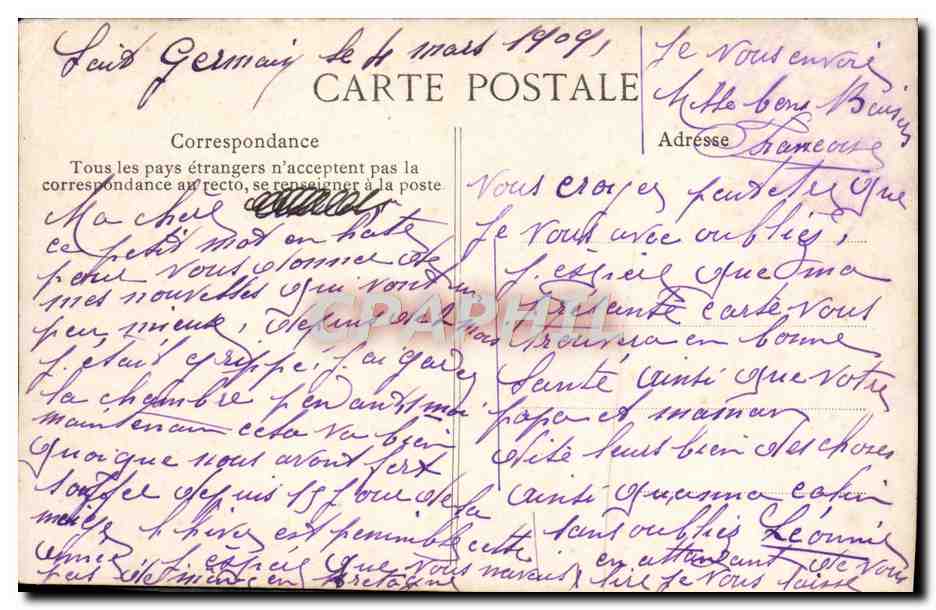 Saint Germain le 4 mars 1909,
CARTE POSTALE
Correspondance
Tous les pays étrangers n'acceptent pas la
correspondance au recto, se renseigner à la poste
Ma chère
ce petit mot en hâte
pour vous donner de
mes nouvelles qui vont un
peu mieux, depuis
j'était grippé, j'ai garder
la chambre pendant 1 moi
maintenant cela va bien
quoique nous avont fort
souffer depuis 15 jour de la
neige l'hiver est penible cette
année, j'espère que vous n'avais
pas de neige en Bretagne
Adresse
Je vous envoie
Mille bons Baisers
Francoise
vous croyez peut etre que
je vous avec oubliés,
j'espère que ma
présente carte vous
trouvera en bonne
santé ainsi que votre
papa et maman
dite leurs bien des choses
ainsi qu'anna
sans oublier Léonnie
en attendant de vous
lire je vous laisse
CPAPHIL